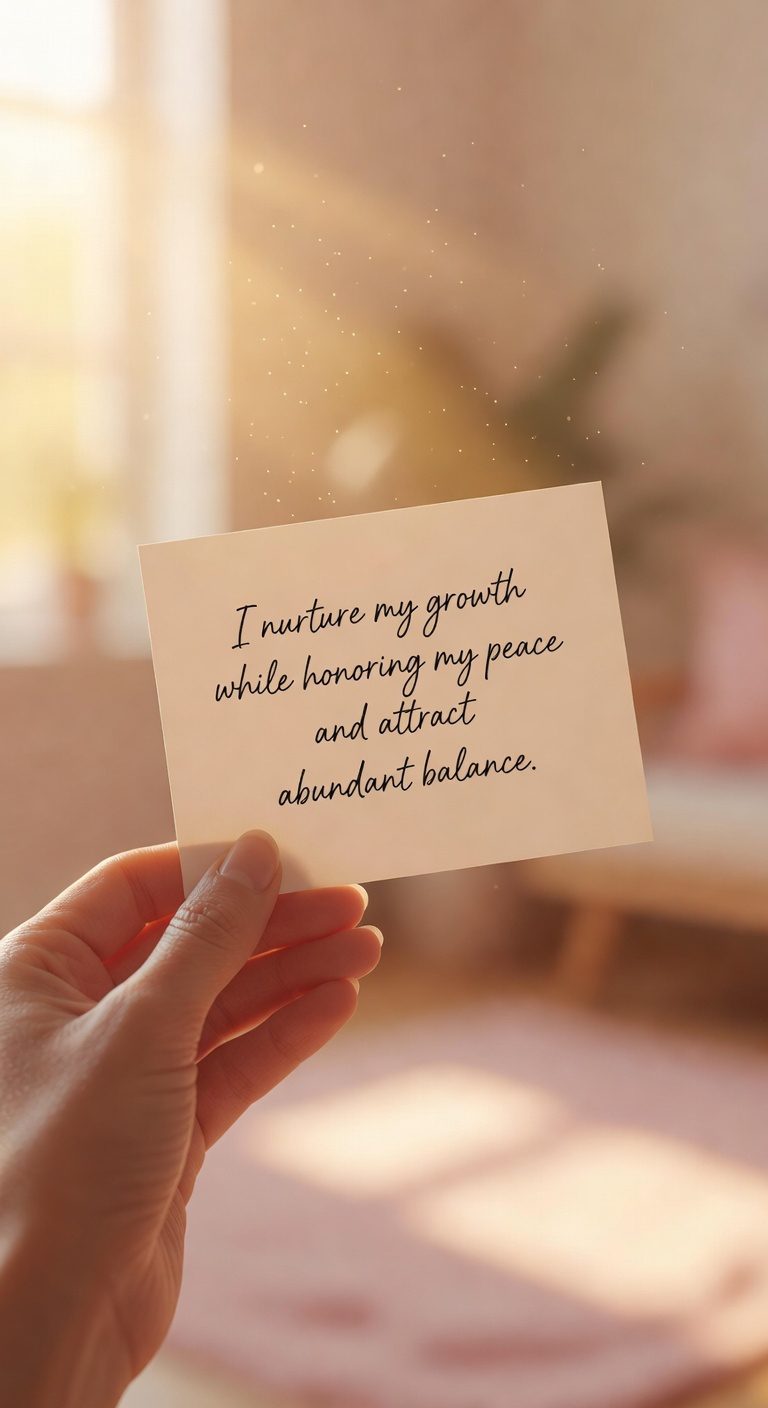 I nurture my growth
while honoring my peace
and attract
abundant balance.